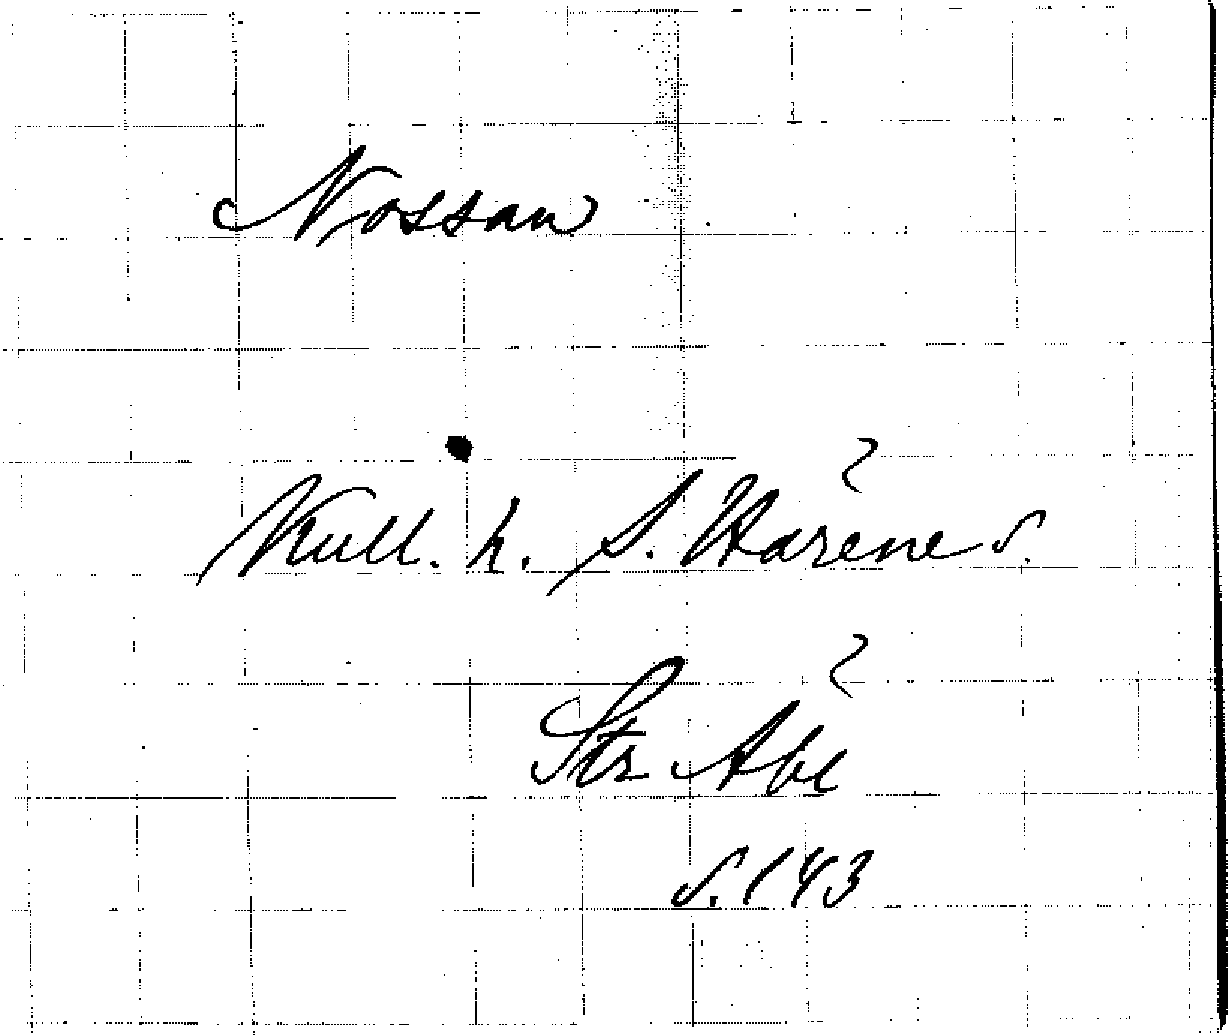 Nossan
Kull. h. S. Härene s.
Str
s. 143